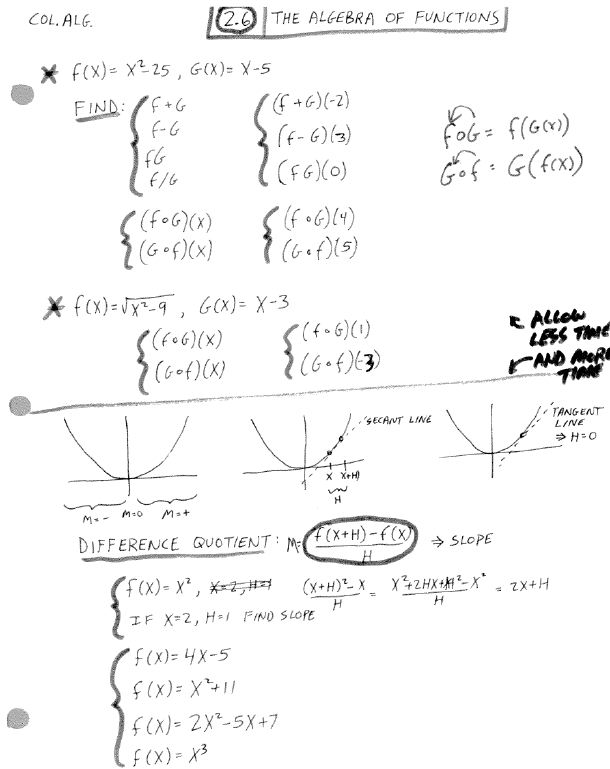 COL. ALG. 2.6 THE ALGEBRA OF FUNCTIONS
* f(x) = x²-25 , G(x) = x-5
FIND: f+G
f-G
fG
f/G
(f+G)(-2)
(f-G)(3)
(fG)(0)
f∘G = f(G(x))
G∘f = G(f(x))
(f∘G)(x)
(G∘f)(x)
(f∘G)(4)
(G∘f)(5)
* f(x) = √x²-9 , G(x) = x-3
(f∘G)(x)
(G∘f)(x)
(f∘G)(1)
(G∘f)(-3)
↖ ALLOW
LESS TIME
↙ AND MORE
TIME
M=- M=0 M=+
SECANT LINE
x x+H
H
TANGENT
LINE
⇒ H=0
DIFFERENCE QUOTIENT: M= f(x+H)-f(x)/H ⇒ SLOPE
f(x) = x², x=2, H=1 (x+H)²-x/H = x²+2Hx+H²-x²/H = 2x+H
IF x=2, H=1 FIND SLOPE
f(x) = 4x-5
f(x) = x²+11
f(x) = 2x²-5x+7
f(x) = x³